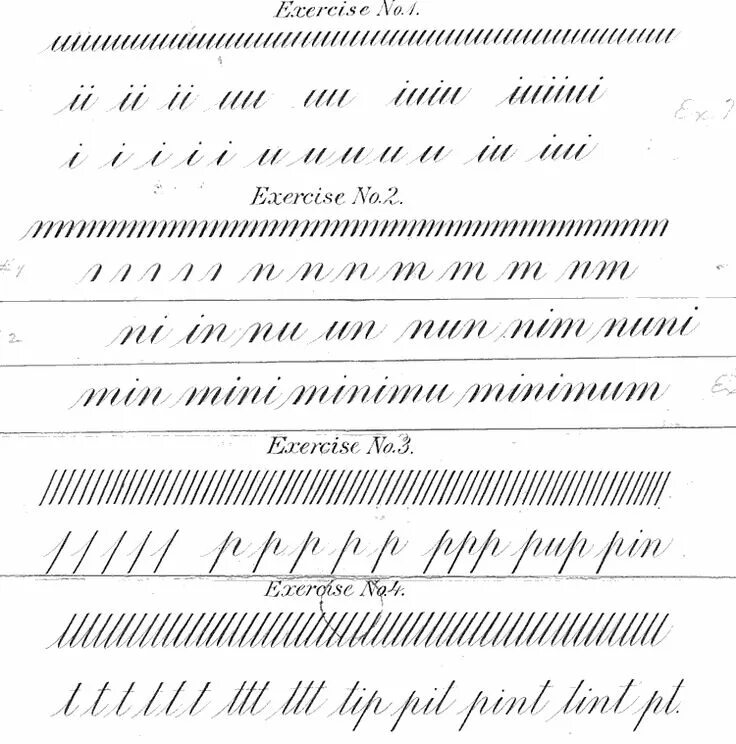 Exercise No.1.
ii ii ii uu uu iuiu
i i i i i u u u u u iu iui
Exercise No.2.
n n n m m m nm
ni in nu un nun nim nuni
min mini minimu minimum
Exercise No.3.
p p p p p ppp pup pin
Exercise No.4.
t t t t t t ttt ttt tip pit pint tint pt.